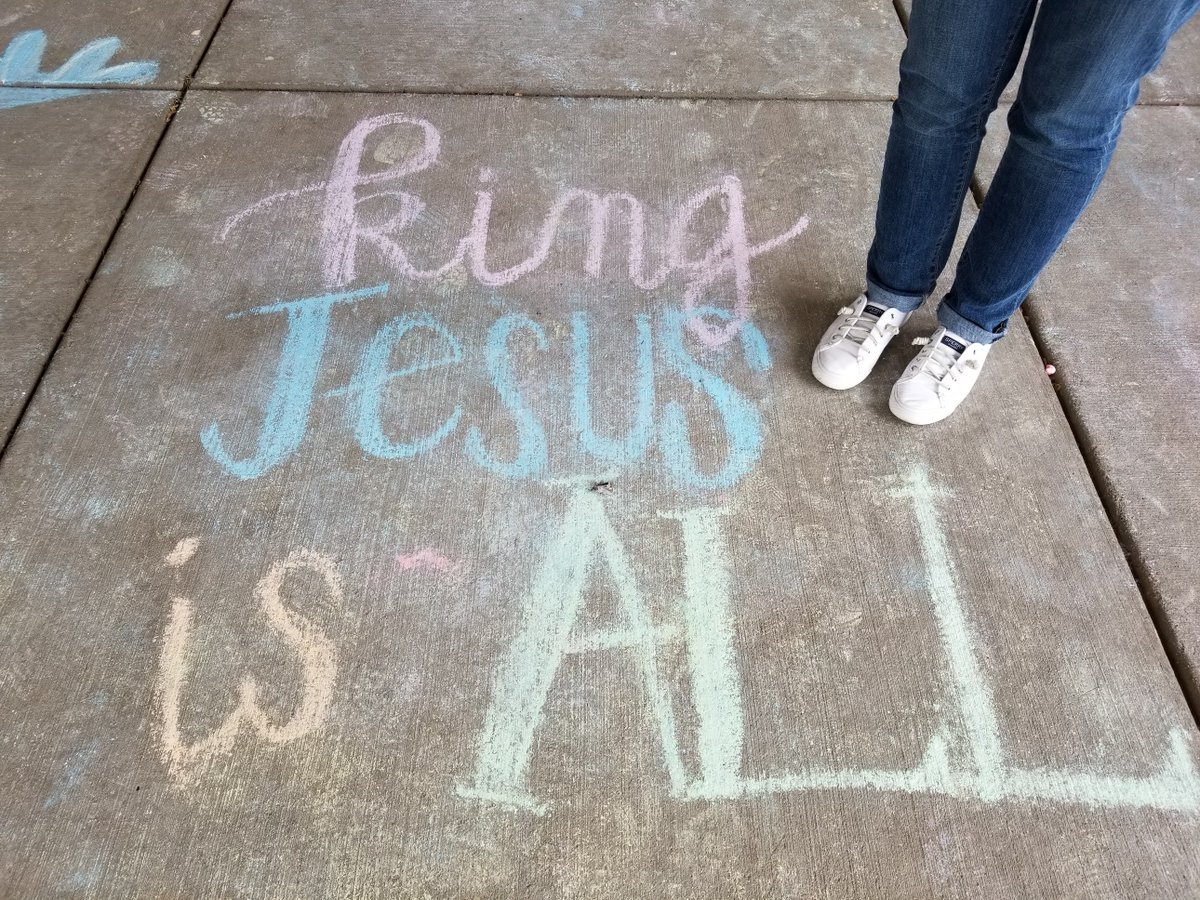 king
Jesus
is ALL